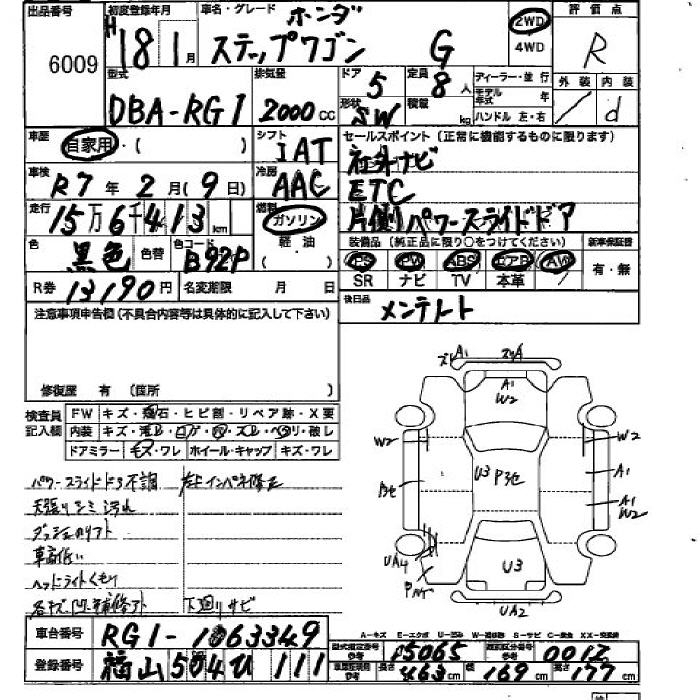 出品番号 初度登録年月 車名・グレード ホンダ 評価点
6009 H 18年 1月 ステップワゴン G 2WD 4WD R
型式 排気量 ドア 5 定員 8人 ディーラー・並行 外装 内装
モデル年式 年
DBA-RG1 2000cc 形状 SW 積載 kg ハンドル 左・右 d
車歴 自家用・( ) シフト IAT セールスポイント(正常に機能するものに限ります)
社外ナビ
車検 R7年2月(9日) 冷房 AAC ETC
走行 15万6千413km 燃料 ガソリン 片側パワースライドドア
色 黒色 色替 色コード B92P 軽油 ( )
装備品(純正品に限り○をつけてください) 新車保証書
PS PW ABS エアB AW 有・無
SR ナビ TV 本革
R券 13190円 名変期限 月 日 後日品 メンテノート
注意事項申告欄(不具合内容等は具体的に記入して下さい)
修復歴 有 (箇所 )
検査員記入欄 FW キズ・飛石・ヒビ割・リペア跡・X要
内装
ドアミラー キズ・ワレ ホイール・キャップ キズ・ワレ
パワースライドドア不調 左下インパネ修正
天張りシミ汚れ
車高低い
ヘッドライトくもり
各キズ凹補修アト 下廻りサビ
A1
A1
W2
W2 W2
U3 P3色 A1
A1
W2
UA4
U3
UA2
A-キズ E-エクボ U-凹み W-補修跡 S-サビ C-腐食 XX-交換済
車台番号 RG1-1063349 型式指定番号 参考 15065 類別区分番号 参考 0012
登録番号 福山 504 ひ 111 車両証明用 参考 長さ 463cm 幅 169cm 高さ 177cm